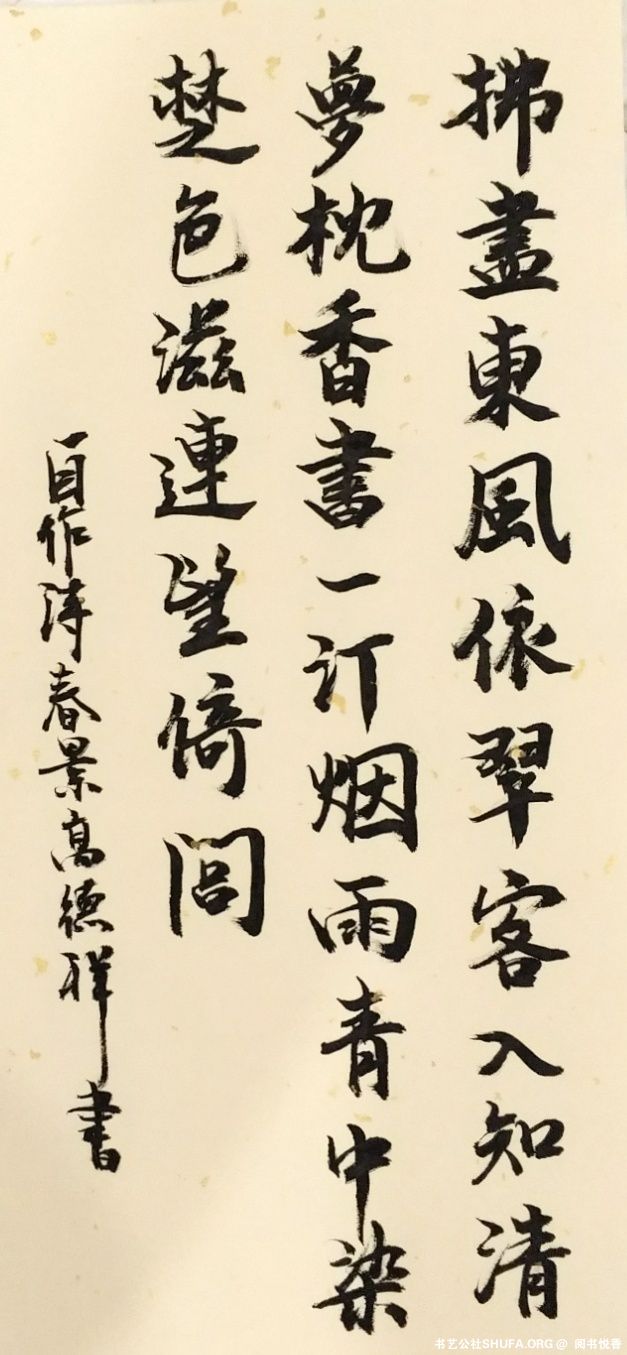 拂盡東風依翠客入知清
夢枕香書一訂烟雨青中染
楚色滋連望倚閭
自作诗春景高德祥書
书艺公社SHUFA.ORG @ 阅书悦香